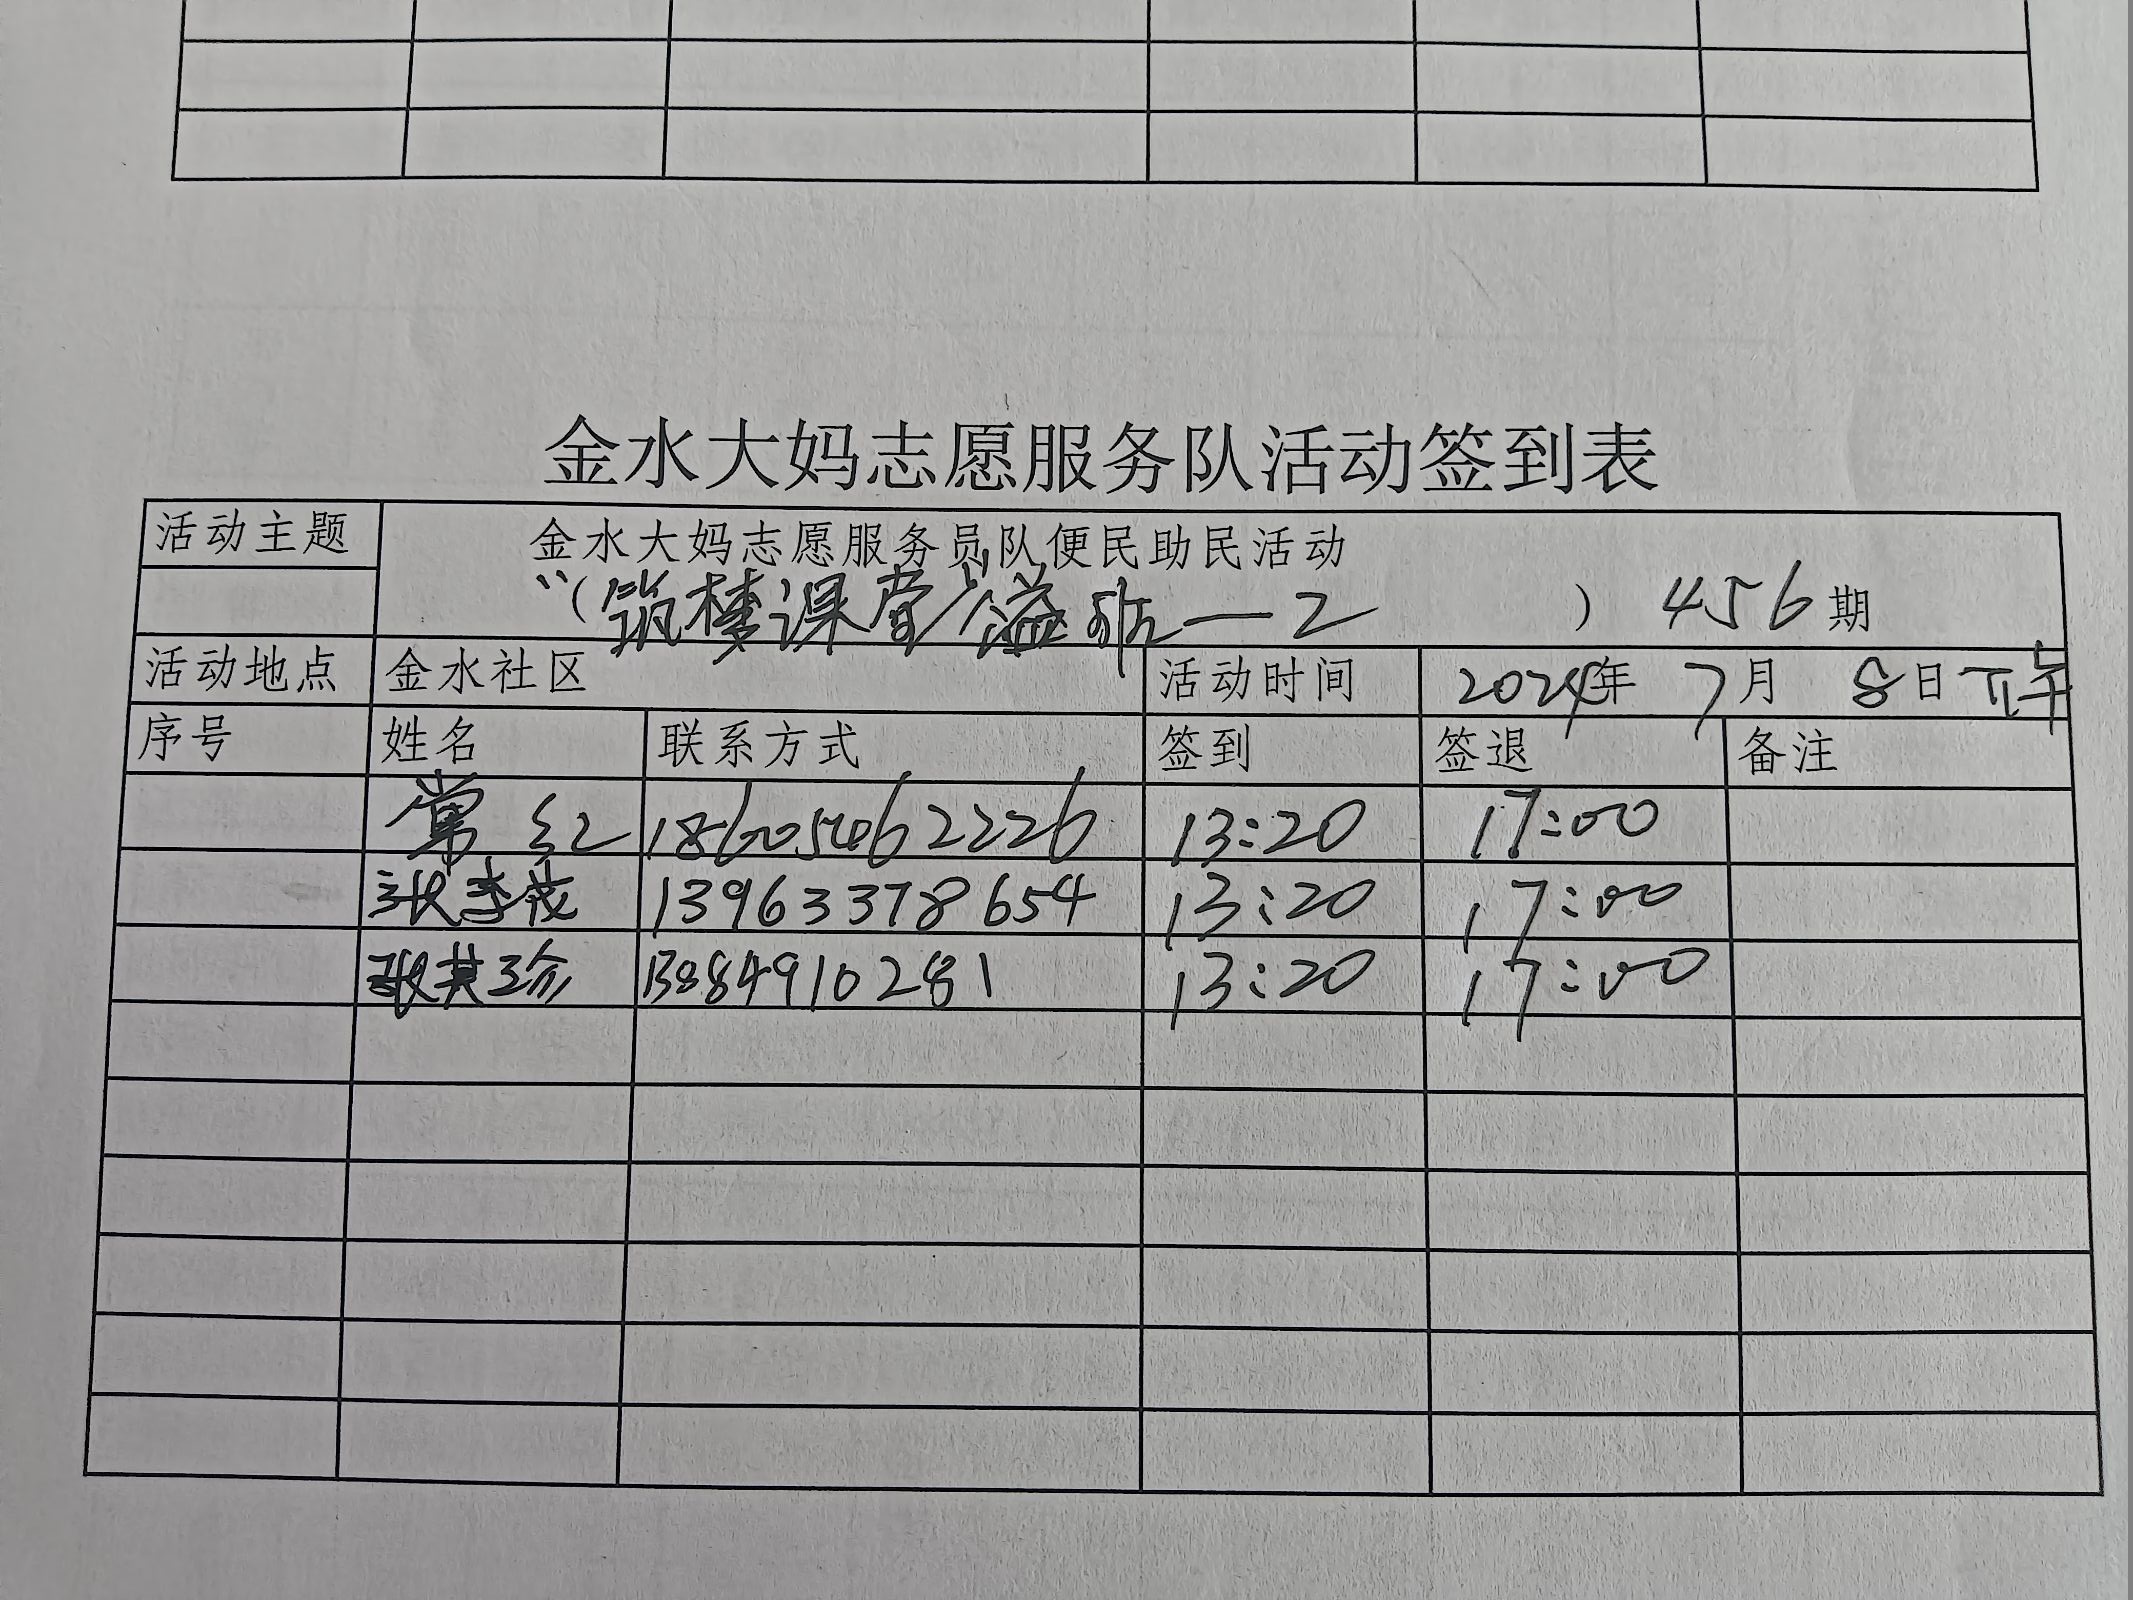 金水大妈志愿服务队活动签到表
活动主题
金水大妈志愿服务员队便民助民活动
“（筑梦课堂公益班—2 ） 456期
活动地点 金水社区 活动时间 2024年 7月 8日 下午
序号 姓名 联系方式 签到 签退 备注
常红 18605462226 13:20 17:00
张李茂 13963378654 13:20 17:00
张其珍 13884910281 13:20 17:00